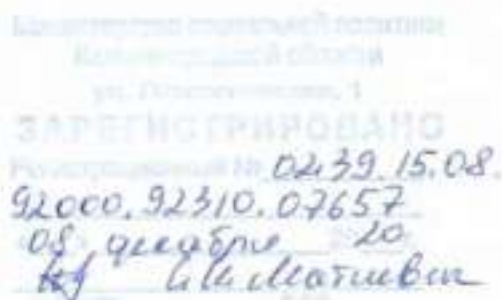 Министерство социальной политики
Калининградской области
ул. 1
ЗАРЕГИСТРИРОВАНО
Регистрационный № 0239.15.08.
92000.92310.07657
08 декабря 20